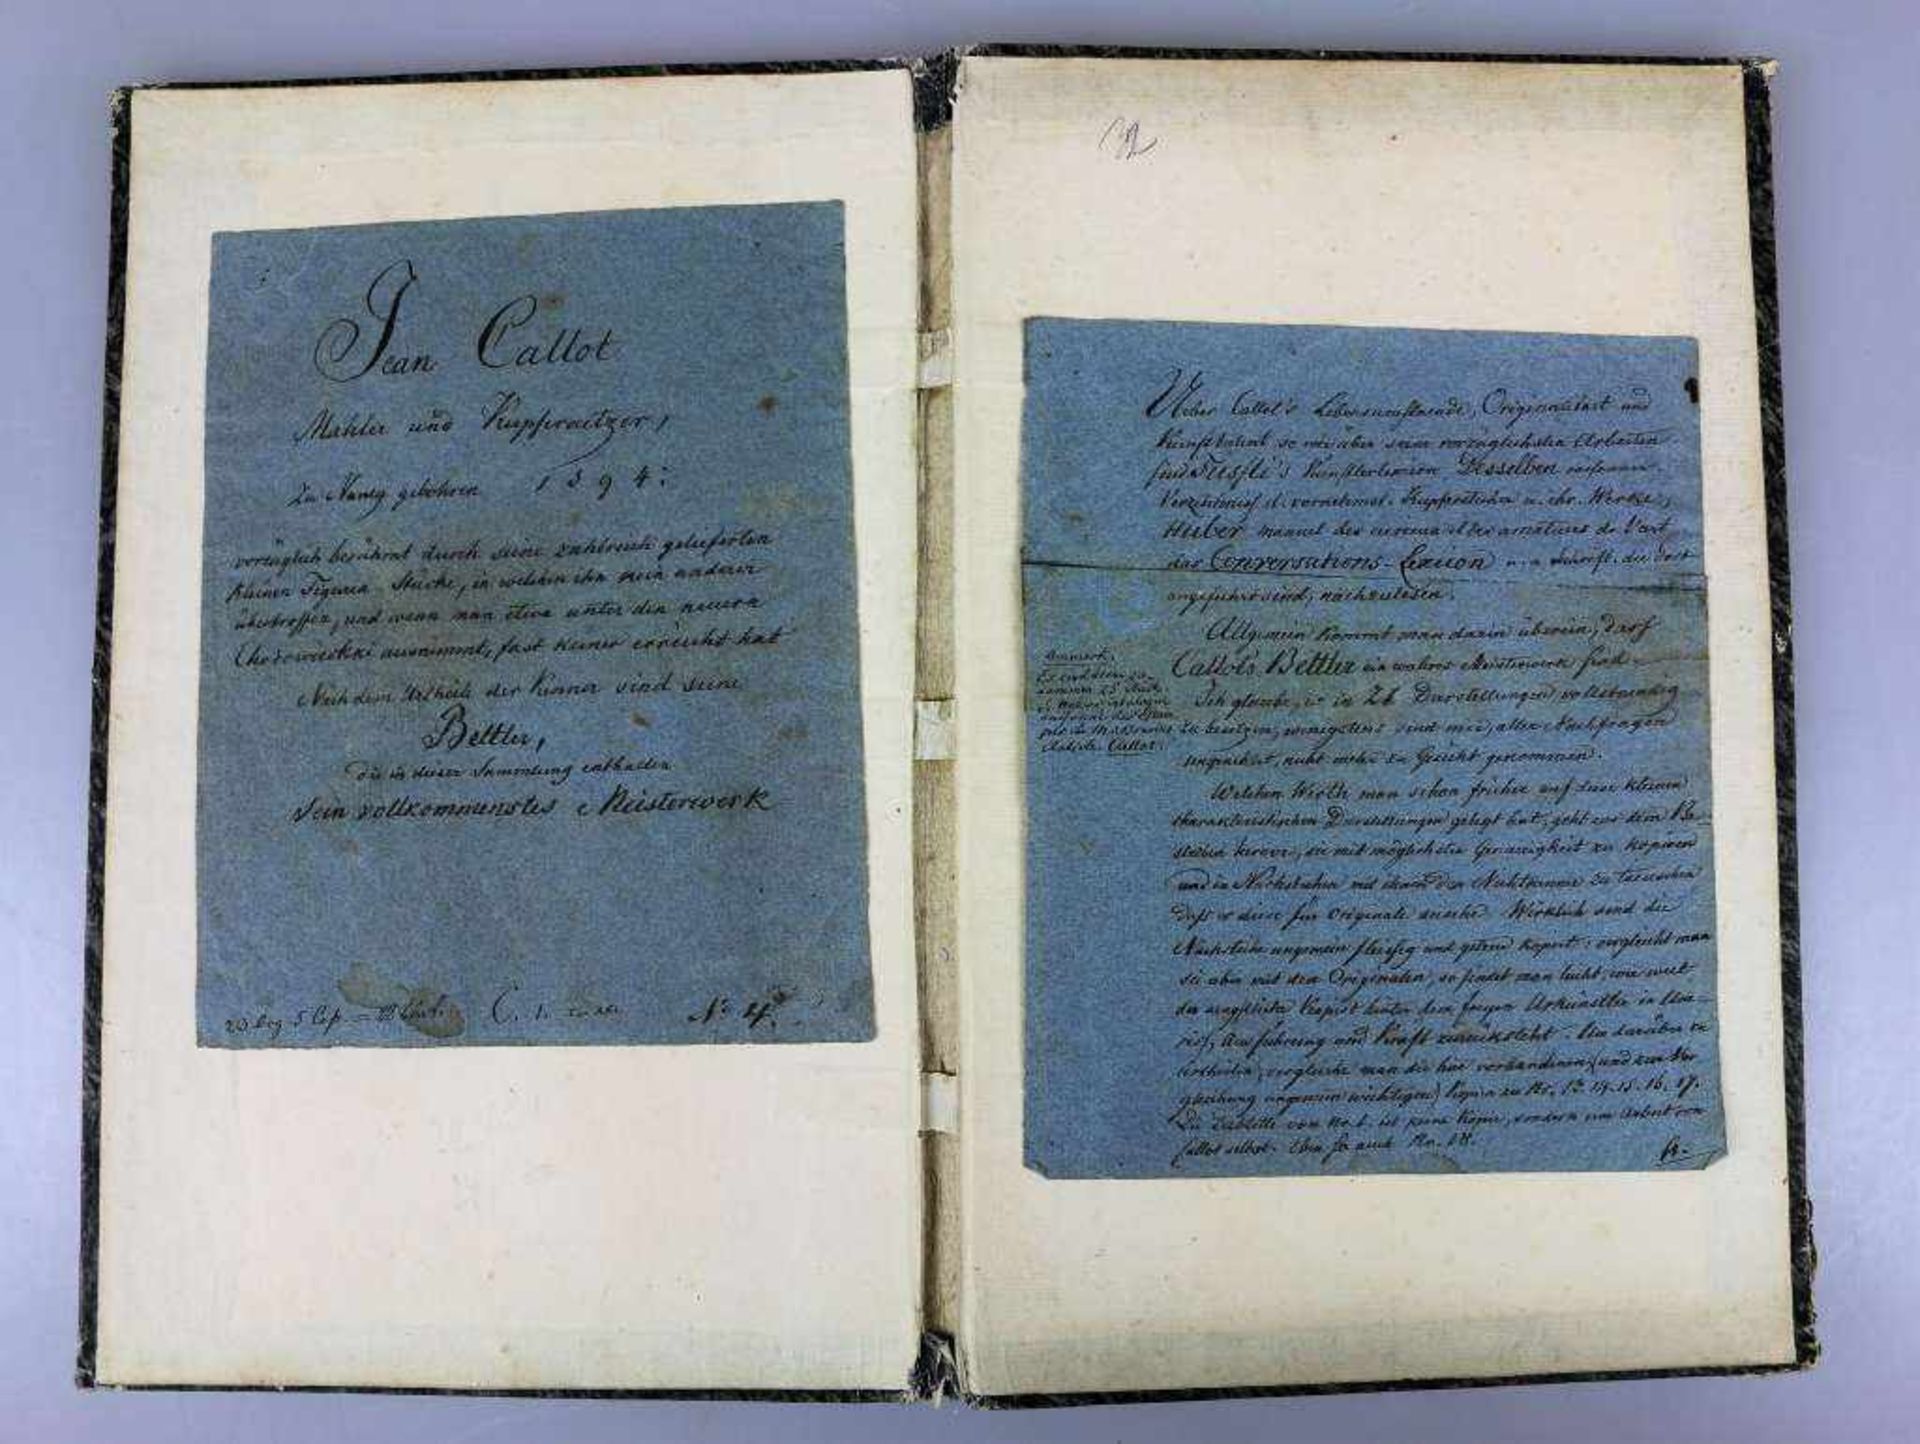 Jean Callot
Mahler und Kupferaitzer,
Zu Nancy gebohren 1594:
vorzüglich berühmt durch seine zahlreich gelieferten
kleinen Figuren-Stücke, in welchen ihn kein anderer
übertroffen, und wenn man etwa unter den neuern
Chodowiecki ausnimmt, fast keiner erreicht hat
Nach dem Urtheile der Kenner sind seine
Bettler,
die in dieser Sammlung enthalten
Sein vollkommenstes Meisterwerk
20 5 Cop. =
No
Ueber Callot's Lebensumstaende, Originalitaet und
Kunsttalent so wie über seine vorzüglichsten Arbeiten
sind Fuesfli's Künstlerlexicon Desselben
Verzeichniss d. vornehmst. Kupferstecher u. ihr. Werke,
Huber manuel des curieux et des amateurs de l'art
das Conversations-Lexicon u. a Schrift. die dort
angeführt sind, nachzulesen.
Allgemein kommt man darin überein, dass
Callot's Bettler ein wahres Meisterwerk sind.
Anmerk.
Es sind deren zu-
sammen 25 Stück
Callot.
Ich glaube, sie in 26 Darstellungen vollstaendig
zu besitzen, wenigstens sind mir, aller Nachfragen
ungeachtet, nicht mehr zu Gesicht gekommen.
Welchen Werth man schon früher auf diese kleinen
charakteristischen Darstellungen gelegt hat, geht aus dem Be-
streben hervor, sie mit möglichster Genauigkeit zu kopiren
und in Nachstichen mit denen den Nichtkenner zu taeuschen
dass er diese für Originale ansehe. Wirklich sind die
Nachstiche ungemein fleissig und getreu kopirt: vergleicht man
sie aber mit den Originalen, so findet man leicht, wie weit
der aengstliche Kopist hinter dem freyen Urkünstler in Um-
riss, Ausführung und Kraft zurücksteht. Um darüber zu
urtheilen, vergleiche man die hier vorhandenen (und zur Ver
gleichung ungemein wichtigen) Kopien zu Nr. 12. 14. 15. 16. 17.
Die Dublette von No. 1. ist keine Kopie, sondern eine Arbeit von
Callot selbst. Eben so auch No. 18.